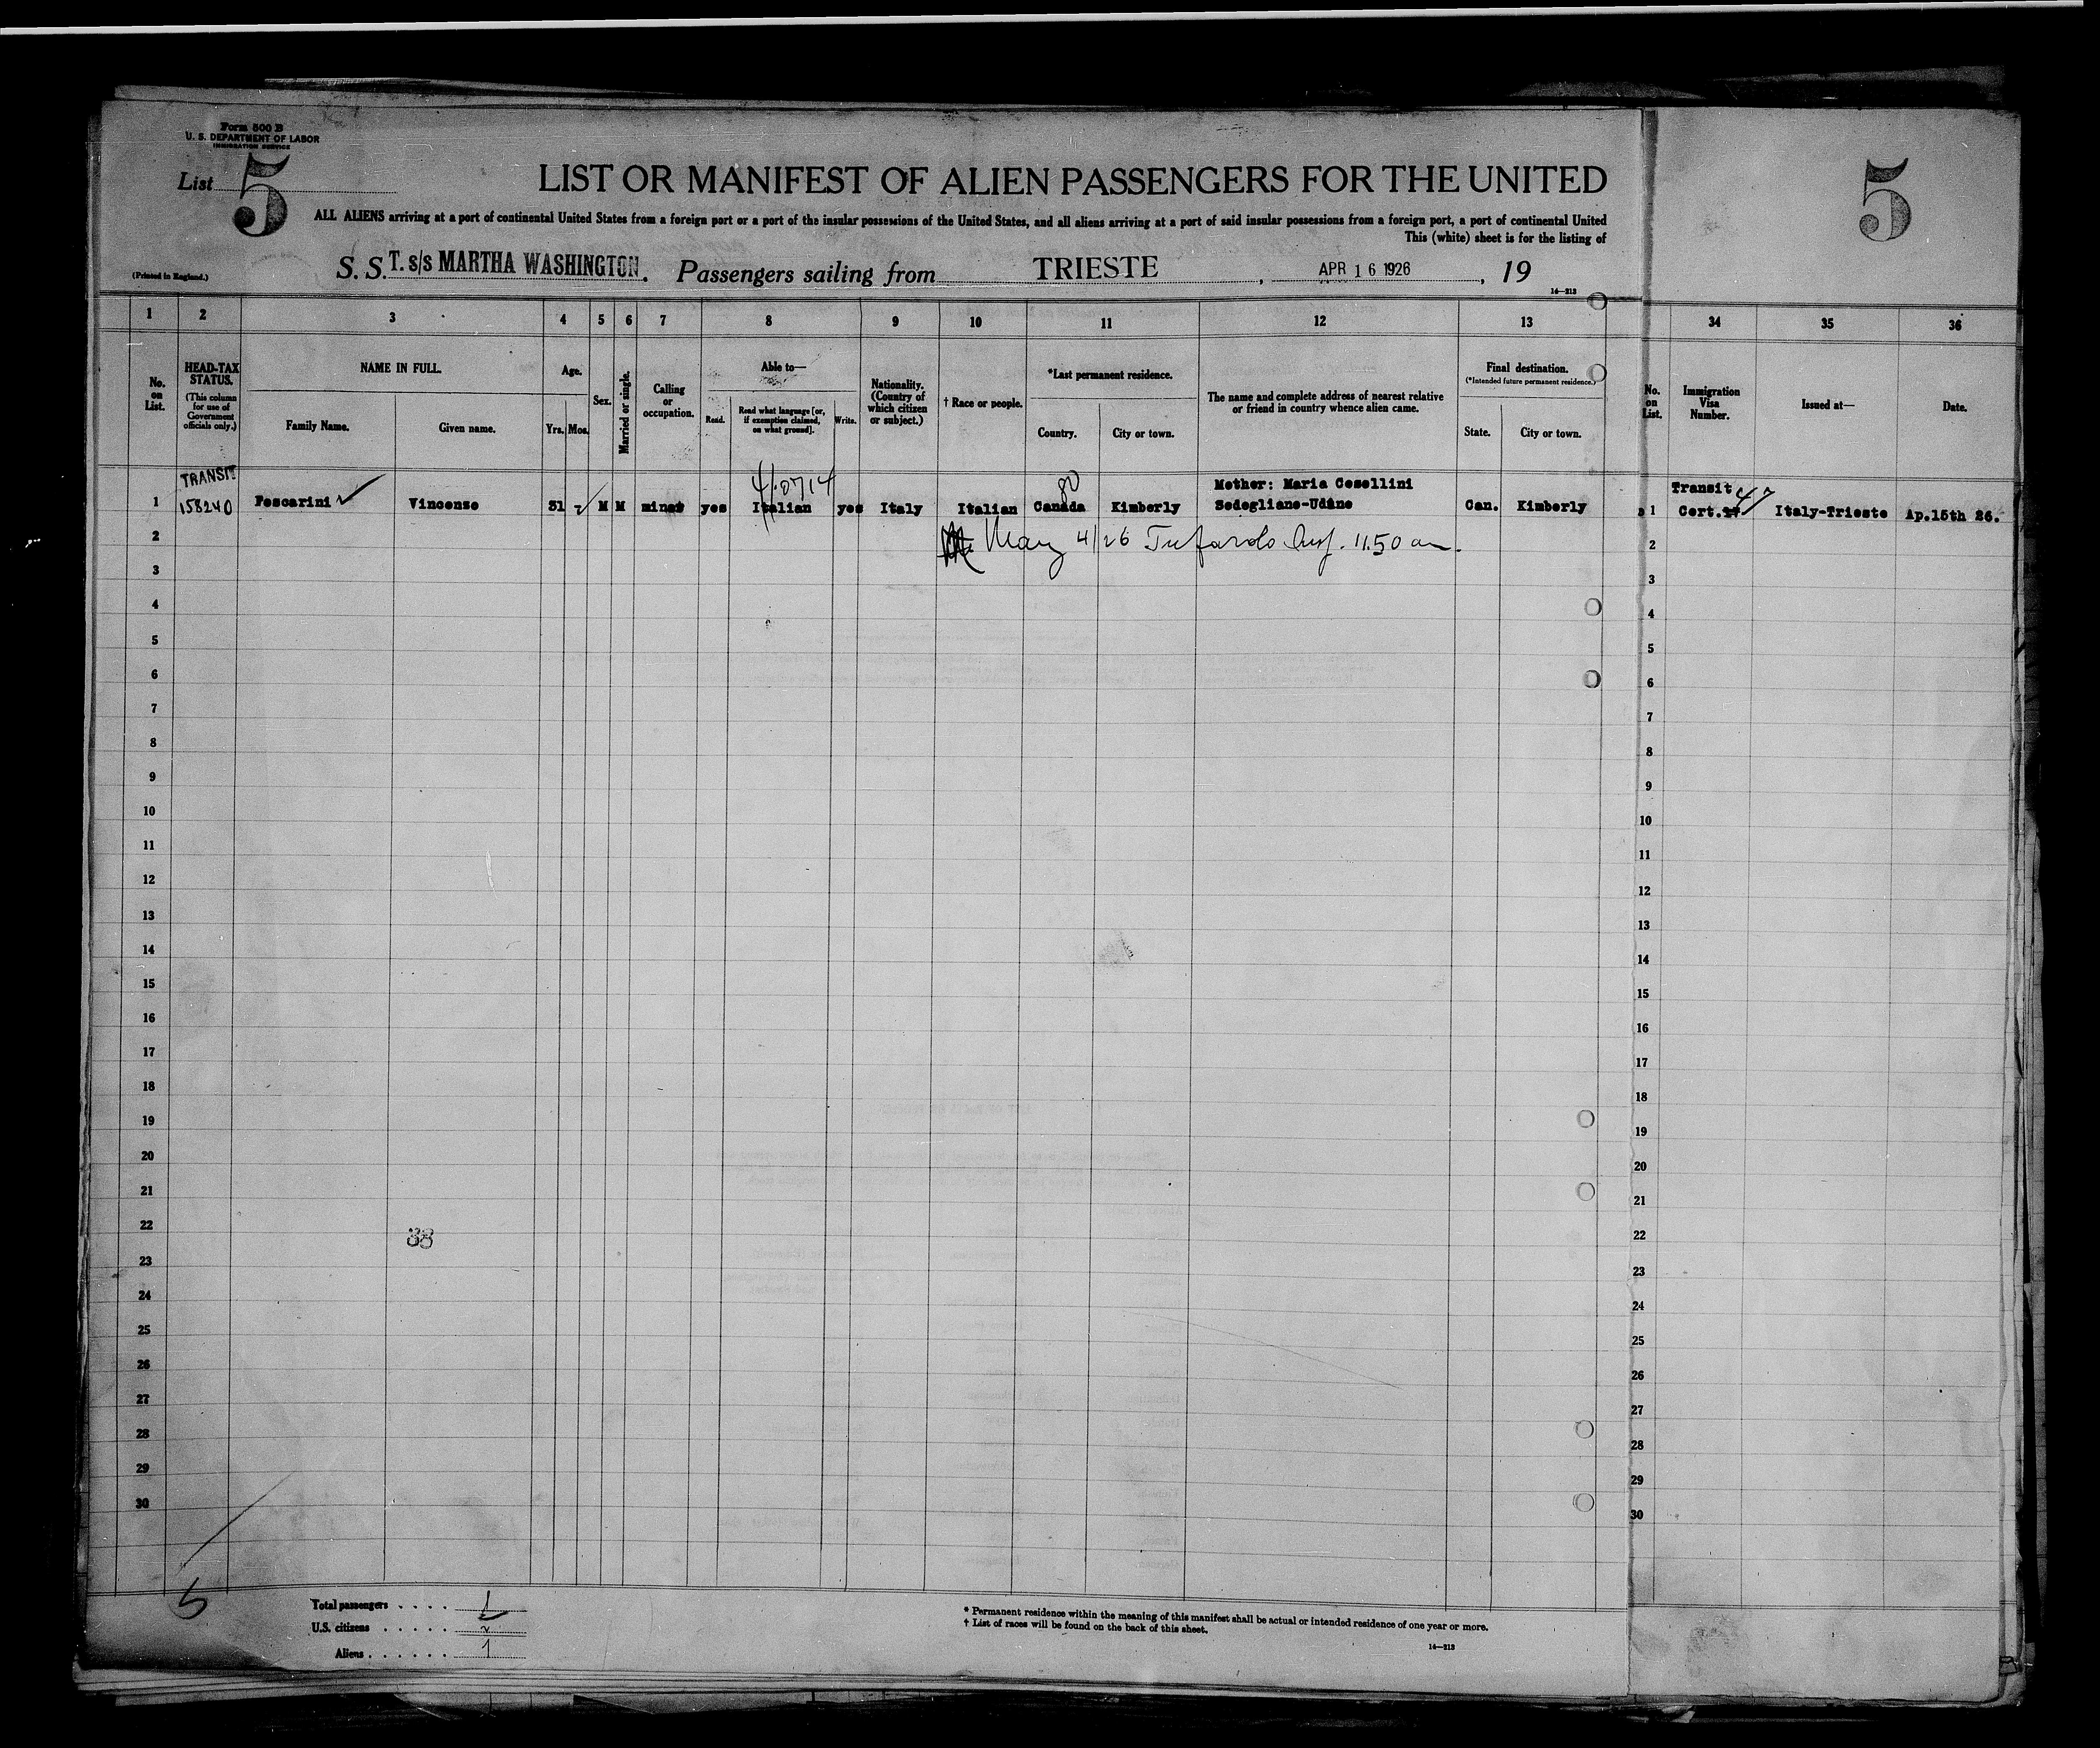 Form 500 B
U. S. DEPARTMENT OF LABOR
IMMIGRATION SERVICE
List 5
LIST OR MANIFEST OF ALIEN PASSENGERS FOR THE UNITED
5
ALL ALIENS arriving at a port of continental United States from a foreign port or a port of the insular possessions of the United States, and all aliens arriving at a port of said insular possessions from a foreign port, a port of continental United
This (white) sheet is for the listing of
(Printed in England.)
S. S. T. s/s MARTHA WASHINGTON. Passengers sailing from TRIESTE, APR 16 1926, 19
14—213
1 2 3 4 5 6 7 8 9 10 11 12 13 34 35 36
No. on List.
HEAD-TAX STATUS. (This column for use of Government officials only.)
NAME IN FULL.
Family Name. Given name.
Age.
Yrs. Mos.
Sex.
Married or single.
Calling or occupation.
Able to—
Read. Read what language [or, if exemption claimed, on what ground]. Write.
Nationality. (Country of which citizen or subject.)
† Race or people.
*Last permanent residence.
Country. City or town.
The name and complete address of nearest relative or friend in country whence alien came.
Final destination.
(*Intended future permanent residence.)
State. City or town.
No. on List.
Immigration Visa Number.
Issued at—
Date.
TRANSIT
80
Mother: Maria Cesellini
Transit 47
1 158240 Pescarini Vincenzo 31 M M miner yes Italian yes Italy Italian Canada Kimberly Sedegliano-Udine Can. Kimberly 1 Cert. Italy-Trieste Ap.15th 26.
2 May 4/26 Insp. 11.50 am. 2
3 3
4 4
5 5
6 6
7 7
8 8
9 9
10 10
11 11
12 12
13 13
14 14
15 15
16 16
17 17
18 18
19 19
20 20
21 21
22 22
38
23 23
24 24
25 25
26 26
27 27
28 28
29 29
30 30
5
Total passengers . . . . 1
U.S. citizens . . . . .
Aliens . . . . . . 1
* Permanent residence within the meaning of this manifest shall be actual or intended residence of one year or more.
† List of races will be found on the back of this sheet.
14—213